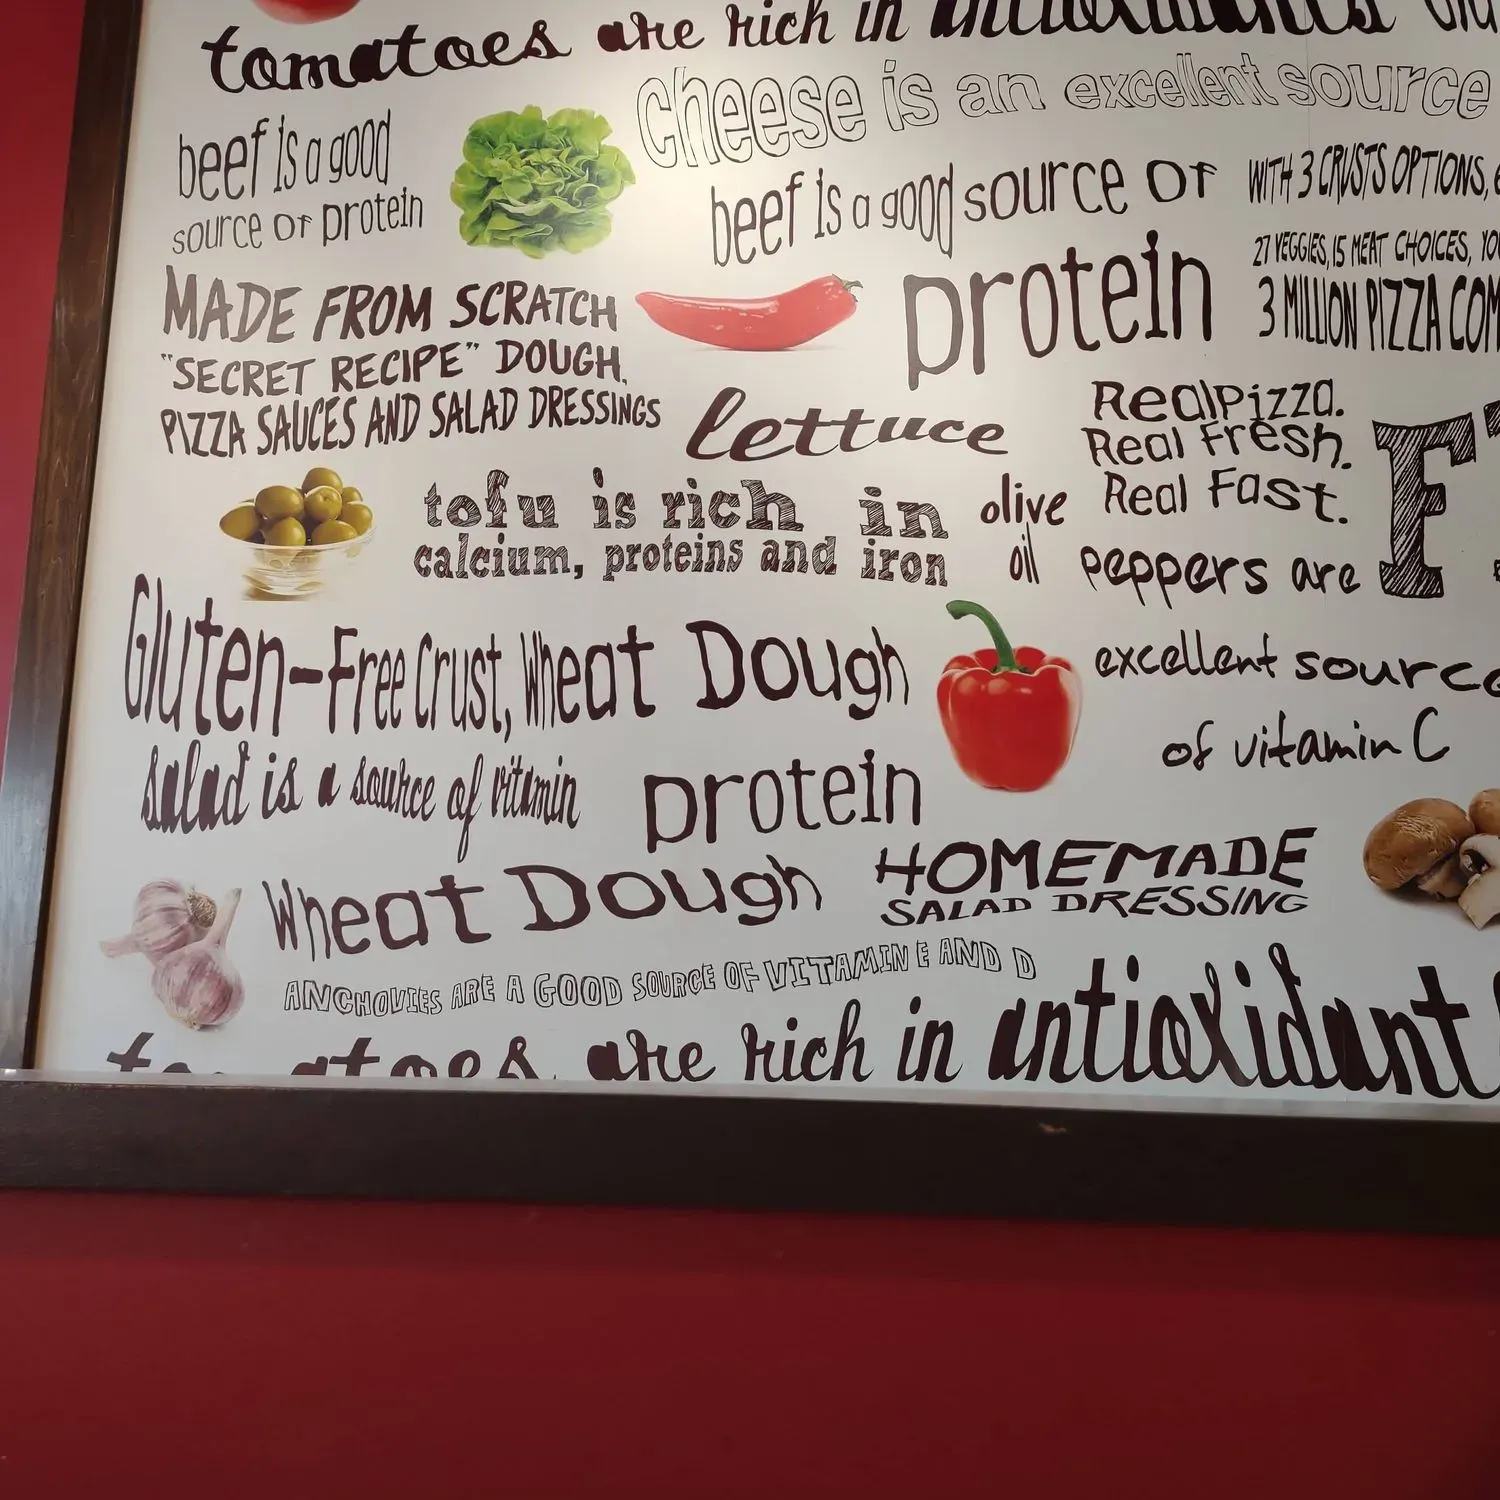 tomatoes are rich in antioxidants
cheese is an excellent source
beef is a good
source of protein
beef is a good source of
protein
WITH 3 CRUSTS OPTIONS,
27 VEGGIES, 15 MEAT CHOICES,
3 MILLION PIZZA
MADE FROM SCRATCH
"SECRET RECIPE" DOUGH,
PIZZA SAUCES AND SALAD DRESSINGS
lettuce
Real Pizza.
Real Fresh.
Real Fast.
tofu is rich in
calcium, proteins and iron
olive
oil
peppers are
excellent source
of vitamin C
Gluten-Free Crust, Wheat Dough
salad is a source of vitamin
protein
Wheat Dough
HOMEMADE
SALAD DRESSING
ANCHOVIES ARE A GOOD SOURCE OF VITAMIN E AND D
are rich in antioxidant